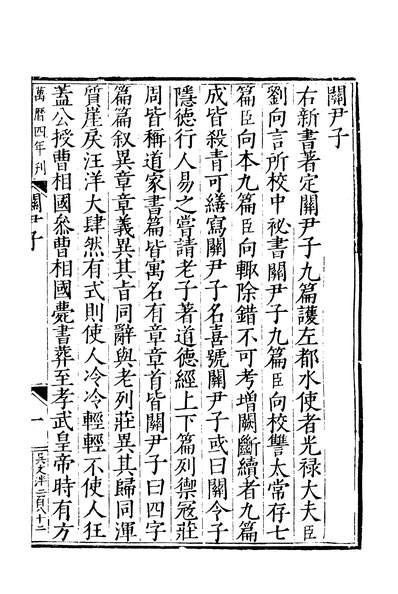 關尹子
右新書著定關尹子九篇護左都水使者光祿大夫臣
劉向言所校中祕書關尹子九篇臣向校讐太常存七
篇臣向本九篇臣向輒除錯不可考增闕斷續者九篇
成皆殺青可繕寫關尹子名喜號關尹子或曰關令子
隱德行人易之嘗請老子著道德經上下篇列禦寇莊
周皆稱道家書篇皆寓名有章章首皆關尹子曰四字
篇篇叙異章章義異其旨同辭與老列莊異其歸同渾
質崖戾汪洋大肆然有式則使人冷冷輕輕不使人狂
蓋公授曹相國參曹相國薨書葬至孝武皇帝時有方
萬曆四年刊
關尹子
一
吳文泮 二百八十二